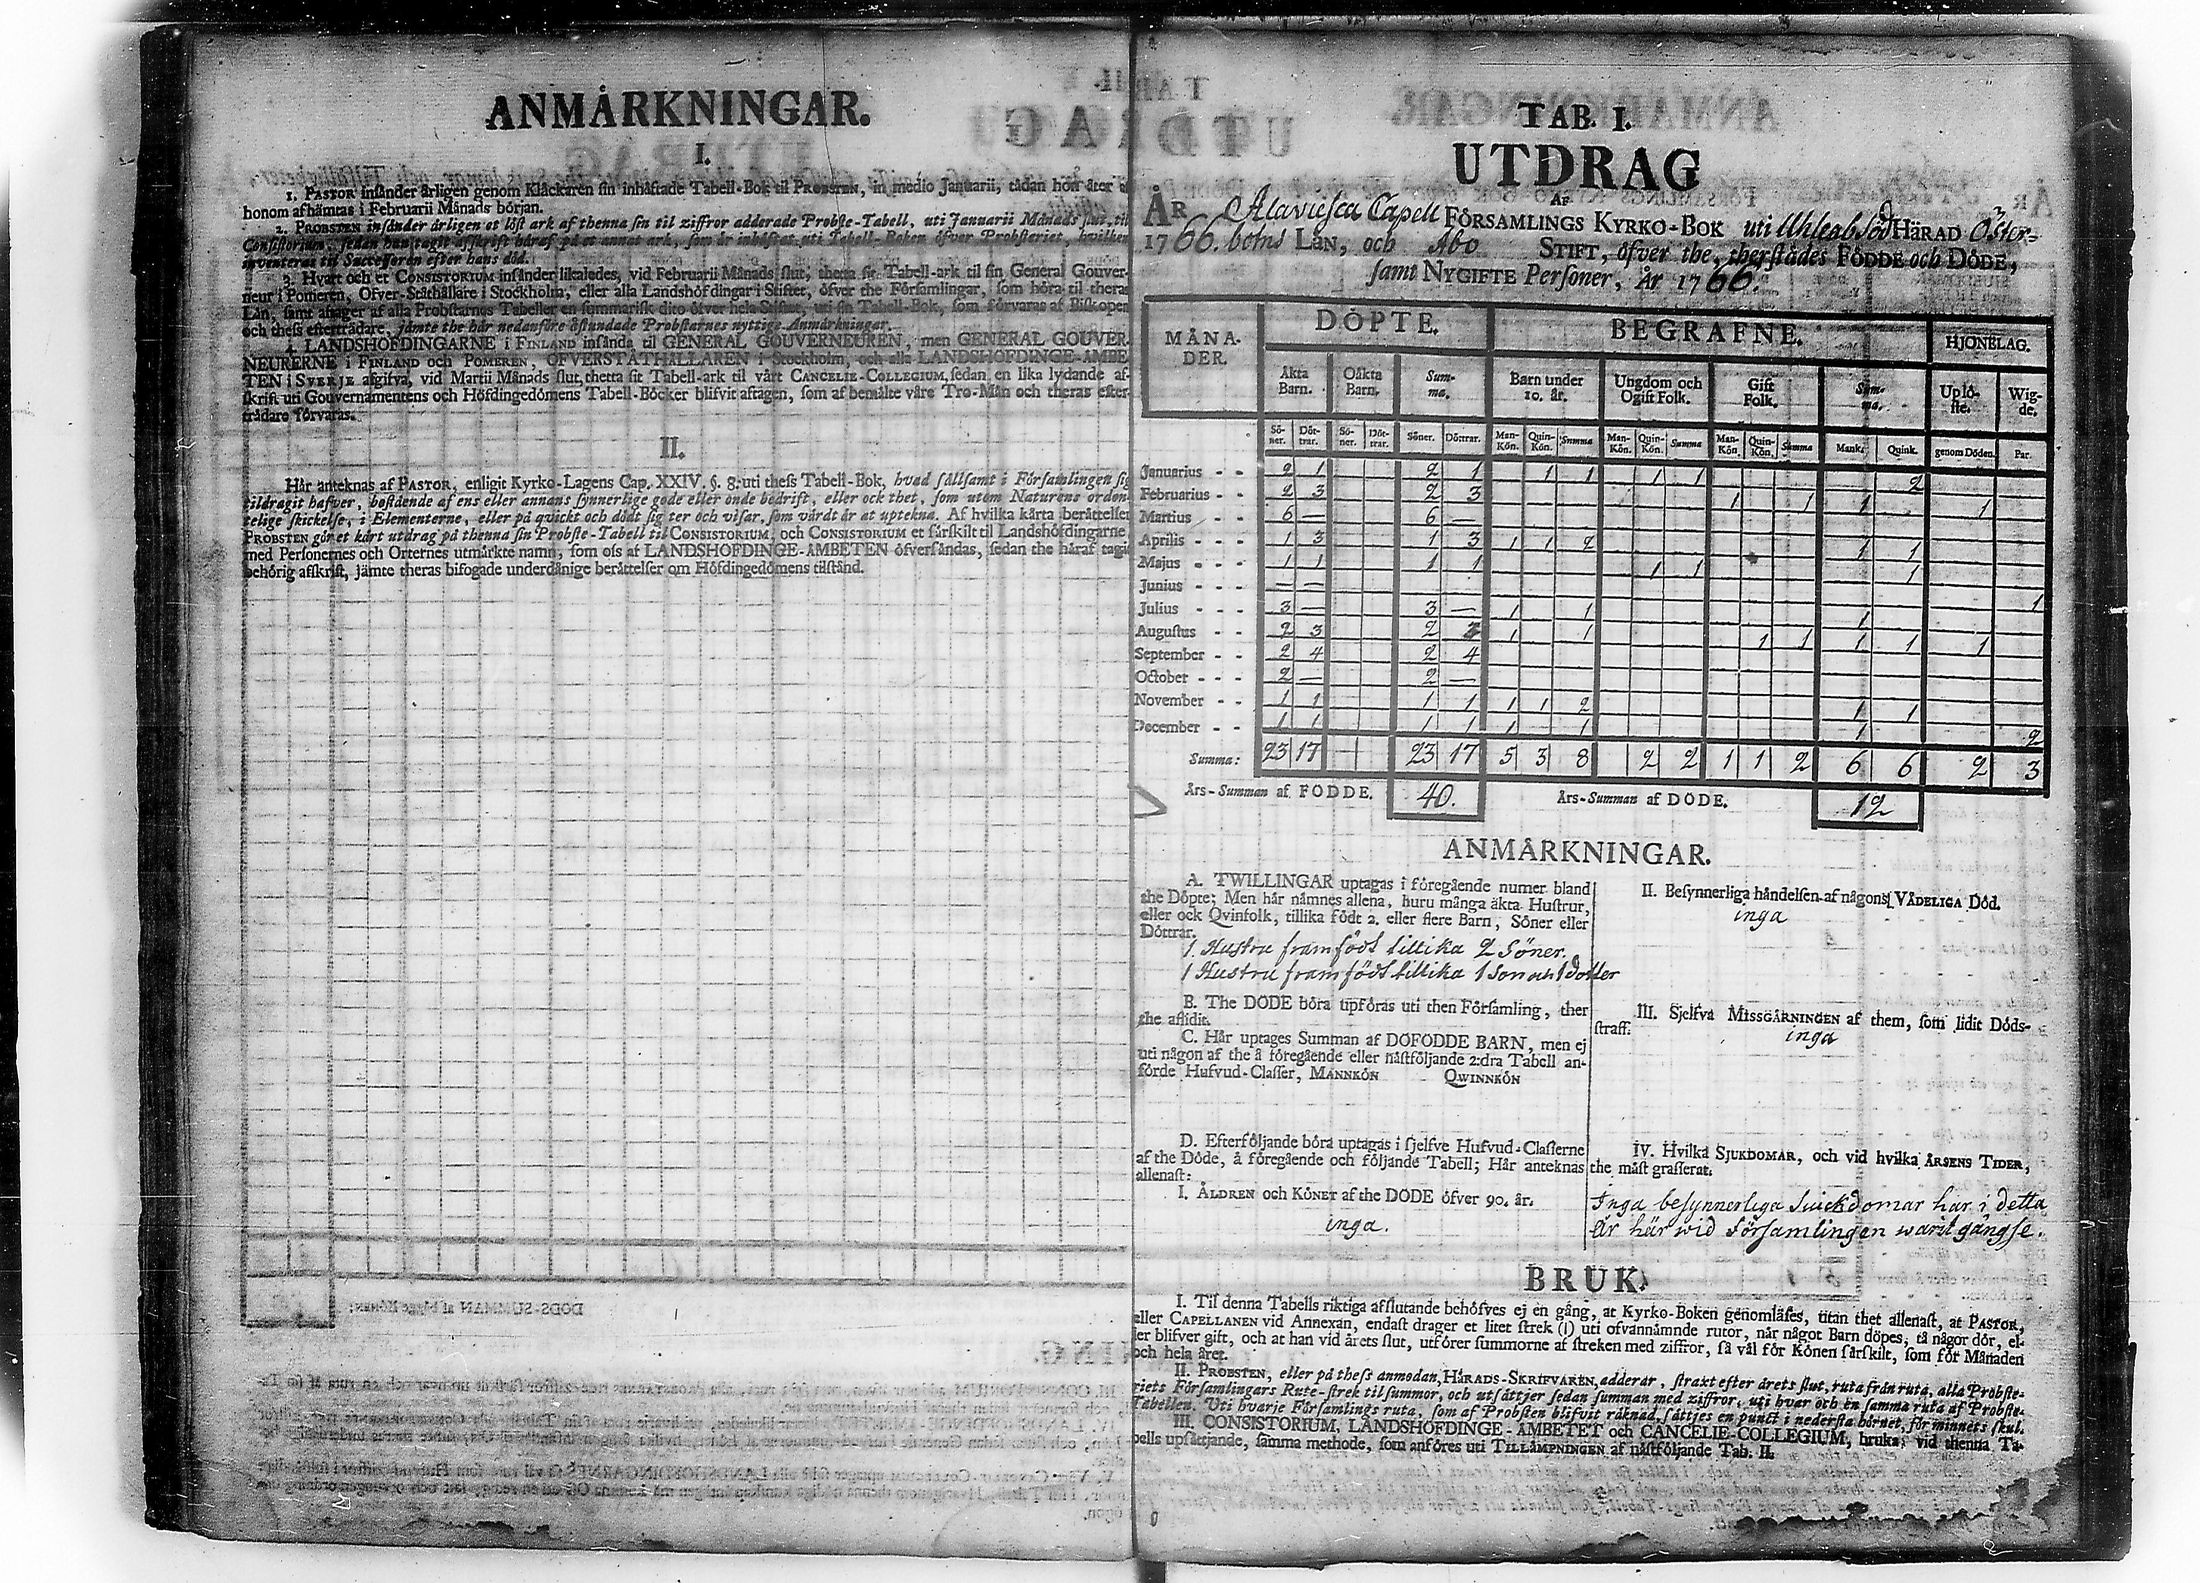 ANMÄRKNINGAR.
I.
1. PASTOR insänder årligen genom Klåckaren sin inhäftade Tabell-Bok til PROBSTEN, in medio Januarii, tådan hon åter af
honom afhämtas i Februarii Månads början.
2. PROBSTEN insänder årligen et löst ark af thenna sin til ziffror adderade Probste-Tabell, uti Januarii Månads slut, til
Consistorium, sedan han tagit afskrift häraf på et annat ark, som är inhäftat uti Tabell-Boken öfver Probsteriet, hvilken
inventeras til Successoren efter hans död.
3. Hvart och et CONSISTORIUM insänder likaledes, vid Februarii Månads slut, thetta sit Tabell-ark til sin General Gouver-
neur i Pomeren, Öfver-Ståthållare i Stockholm, eller alla Landshöfdingar i Stiftet, öfver the Församlingar, som höra til theras
Län, samt aftager af alla Probstarnes Tabeller en summarisk dito öfver hela Stiftet, uti sin Tabell-Bok, som förvaras af Biskopen
och thess efterträdare, jämte the här nedanföre åstundade Probstarnes nyttige Anmärkningar.
4. LANDSHÖFDINGARNE i FINLAND insända til GENERAL GOUVERNEUREN, men GENERAL GOUVER-
NEURERNE i FINLAND och POMEREN, ÖFVERSTÅTHÅLLAREN i Stockholm, och alla LANDSHÖFDINGE-ÄMBE-
TEN i SVERJE afgifva, vid Martii Månads slut, thetta sit Tabell-ark til vårt CANCELIE-COLLEGIUM, sedan en lika lydande af-
skrift uti Gouvernamentens och Höfdingedömens Tabell-Böcker blifvit aftagen, som af bemälte våre Tro-Män och theras efter-
trädare förvaras.
II.
Här anteknas af PASTOR, enligit Kyrko-Lagens Cap. XXIV. §. 8. uti thess Tabell-Bok, hvad sällsamt i Församlingen sig
tildragit hafver, bestående af ens eller annans synnerlige gode eller onde bedrift, eller ock thet, som utom Naturens orden-
telige skickelse, i Elementerne, eller på qvickt och dödt sig ter och visar, som värdt är at uptekna. Af hvilka kårta berättelser
PROBSTEN gör et kårt utdrag på thenna sin Probste-Tabell til CONSISTORIUM, och CONSISTORIUM et särskilt til Landshöfdingarne,
med Personernes och Orternes utmärkte namn, som oss af LANDSHÖFDINGE-ÄMBETEN öfversändas, sedan the häraf tagit
behörig afskrift, jämte theras bifogade underdånige berättelser om Höfdingedömens tilstånd.
TAB. I.
UTDRAG
AF
ÅR Alaviesca Capell FÖRSAMLINGS KYRKO-BOK uti Uhleåborgs HÄRAD Öster=
1766. botns LÄN, och Åbo STIFT, öfver the, therstädes FÖDDE och DÖDE,
samt NYGIFTE Personer, År 1766.
MÅNA-DER. DÖPTE. BEGRAFNE. HJONELAG.
Äkta Barn. Oäkta Barn. Summa. Barn under 10. år. Ungdom och Ogift Folk. Gift Folk. Summa. Uplöste. Wigde.
Söner. Döttrar. Söner. Döttrar. Söner. Döttrar. Man-Kön. Quin-Kön. Summa Man-Kön. Quin-Kön. Summa Man-Kön. Quin-Kön. Summa Mank. Quink. genom Döden. Par.
Januarius - - 2 1 2 1 1 1 1 1 2
Februarius - - 2 3 2 3 1 1 1 1
Martius - - 6 — 6 —
Aprilis - - - 1 3 1 3 1 1 2 1 1
Majus - - - 1 1 1 1 1 1 1
Junius - - - — —
Julius - - - 3 — 3 — 1 1 1 1
Augustus - - 2 3 2 3 1 1 1 1 1 1 1
September - - 2 4 2 4
October - - - 2 — 2 —
November - - 1 1 1 1 1 1 2 1 1
December - - 1 1 1 1 1 1 1 2
Summa: 23 17 — 23 17 5 3 8 2 2 1 1 2 6 6 2 3
Års-Summan af FÖDDE. 40. Års-Summan af DÖDE. 12
ANMÄRKNINGAR.
A. TWILLINGAR uptagas i föregående numer bland
the Döpte; Men här nämnes allena, huru många äkta Hustrur,
eller ock Qvinfolk, tillika födt 2. eller flere Barn, Söner eller
Döttrar.
1. Hustru framfödt tillika 2 Söner.
1 Hustru framfödt tillika 1 Son och 1 dotter
B. The DÖDE böra upföras uti then Församling, ther
the aflidit.
C. Här uptages Summan af DÖFÖDDE BARN, men ej
uti någon af the å föregående eller nästföljande 2:dra Tabell an-
förde Hufvud-Classer, MANNKÖN QWINNKÖN
D. Efterföljande böra uptagas i sjelfve Hufvud-Classerne
af the Döde, å föregående och följande Tabell; Här anteknas
allenast:
I. ÅLDREN och KÖNET af the DÖDE öfver 90. år.
inga.
II. Besynnerliga händelsen af någons VÅDELIGA Död.
inga
III. Sjelfva MISSGÄRNINGEN af them, som lidit Döds-
straff.
inga
IV. Hvilka SJUKDOMAR, och vid hvilka ÅRSENS TIDER,
the mäst grasserat.
Inga besynnerliga Siuckdomar har i detta
År här wid Församlingen warit gångse.
BRUK.
I. Til denna Tabells riktiga afslutande behöfves ej en gång, at Kyrko-Boken genomläses, utan thet allenast, at PASTOR,
eller CAPELLANEN vid Annexan, endast drager et litet strek (|) uti ofvannämnde rutor, når något Barn döpes, tå någor dör, el-
ler blifver gift, och at han vid årets slut, utförer summorne af streken med ziffror, så väl för Könen särskilt, som för Månaden
och hela året.
II. PROBSTEN, eller på thess anmodan, HÄRADS-SKRIFVAREN, adderar, straxt efter årets slut, ruta från ruta, alla Probste-
riets Församlingars Rute-strek til summor, och utsättjer sedan summan med ziffror, uti hvar och en samma ruta af Probste-
Tabellen. Uti hvarje Församlings ruta, som af Probsten blifvit räknad, sättjes en punct i nedersta hörnet, för minnets skul.
III. CONSISTORIUM, LANDSHÖFDINGE-ÄMBETET och CANCELIE-COLLEGIUM, bruka, vid thenna Ta-
bells upsättjande, samma methode, som anföres uti TILLÄMPNINGEN af nästföljande Tab. II.